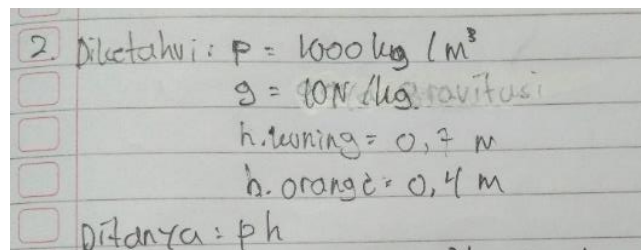 2. Diketahui : p = 1000 kg / m³
g = 10N / kg gravitasi
h. kuning = 0,7 m
h. orange = 0,4 m
Ditanya : ph